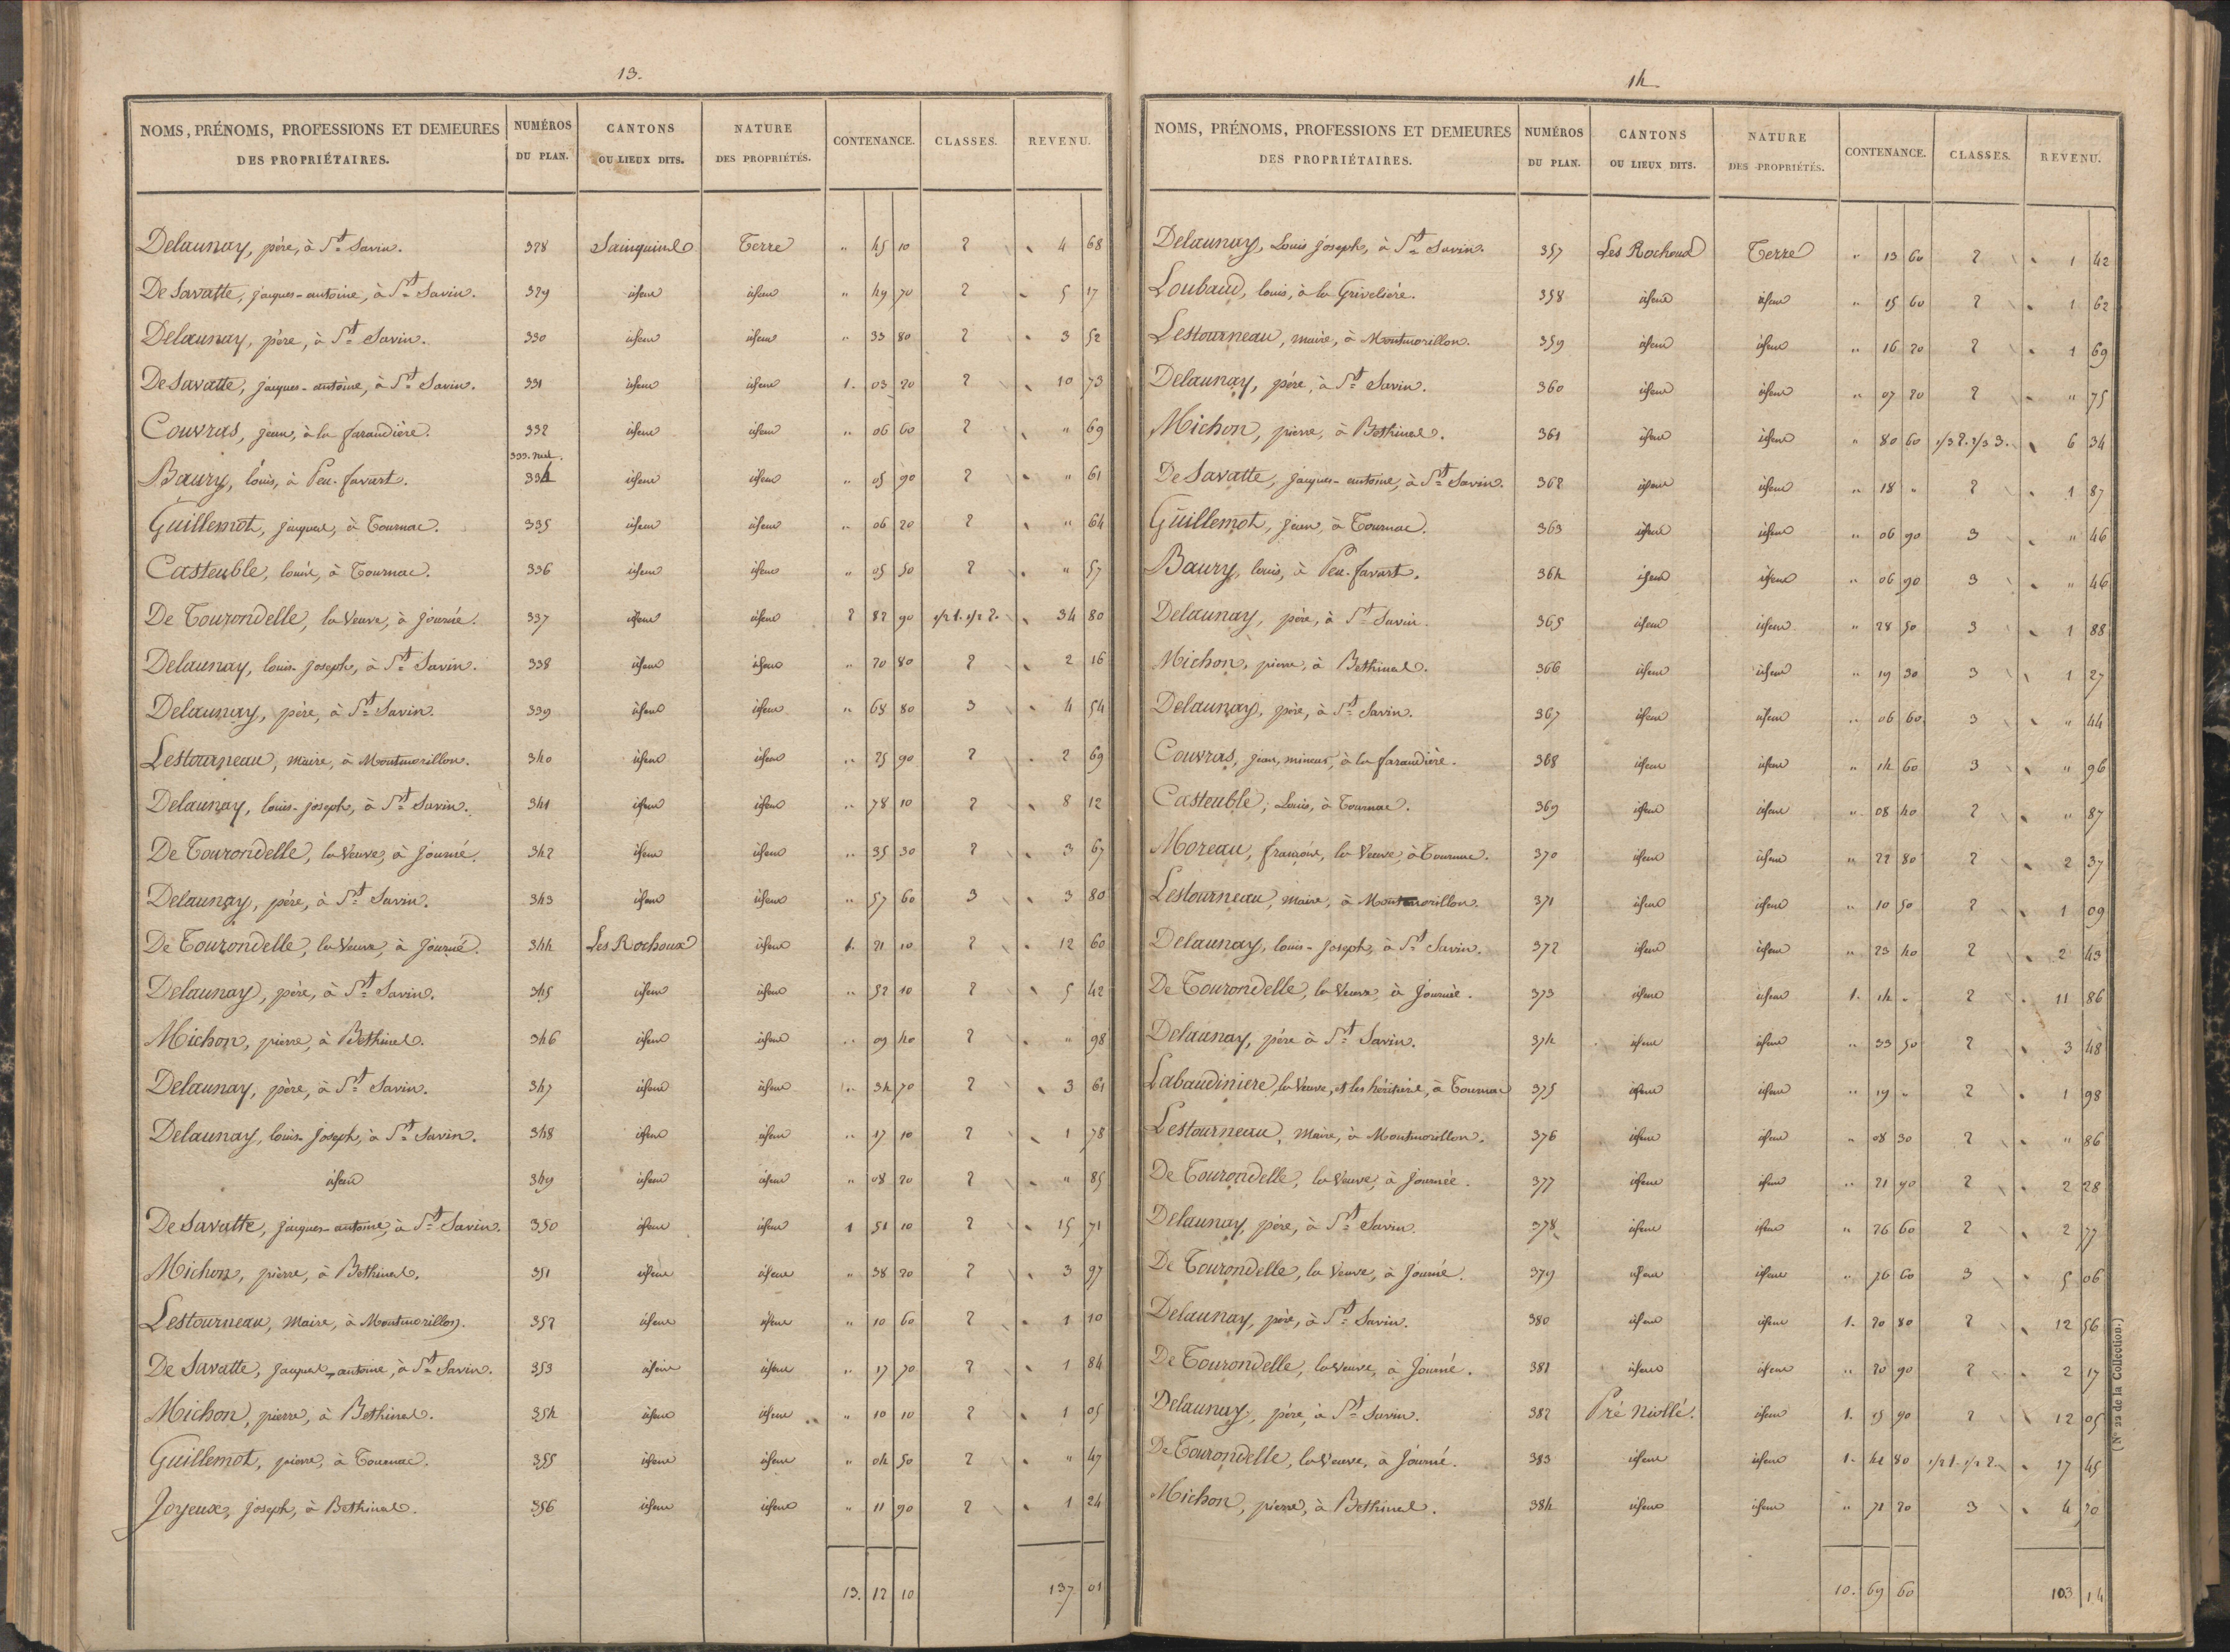 13.
NOMS, PRÉNOMS, PROFESSIONS ET DEMEURES DES PROPRIÉTAIRES. NUMÉROS DU PLAN. CANTONS OU LIEUX DITS. NATURE DES PROPRIÉTÉS. CONTENANCE. CLASSES. REVENU.
Delaunay, père, à St Savin. 328 Terre " 45 10 2 " 4 68
De Savatte, jacques-antoine, à St Savin. 329 idem idem " 49 70 2 " 5 17
Delaunay, père, à St Savin. 330 idem idem " 33 80 2 " 3 52
De Savatte, jacques-antoine, à St Savin. 331 idem idem 1. 03 20 2 " 10 73
Couvras, jean, à la faraudière. 332 idem idem " 06 60 2 " " 69
333. nul.
Baury, louis, à Peu-favart. 334 idem idem " 05 90 2 " " 61
Guillemot, jacques, à Tournac. 335 idem idem " 06 20 2 " " 64
Casteuble, louis, à Tournac. 336 idem idem " 05 50 2 " " 57
De Tourondelle, la Veuve, à journé. 337 idem idem 2 82 90 1/2 1. 1/2 2. " 34 80
Delaunay, louis-joseph, à St Savin. 338 idem idem " 20 80 2 " 2 16
Delaunay, père, à St Savin. 339 idem idem " 68 80 3 " 4 54
Lestourneau, maire, à Montmorillon. 340 idem idem " 25 90 2 " 2 69
Delaunay, louis-joseph, à St Savin. 341 idem idem " 78 10 2 " 8 12
De Tourondelle, la Veuve, à journé. 342 idem idem " 35 30 2 " 3 67
Delaunay, père, à St Savin. 343 idem idem " 57 60 3 " 3 80
De Tourondelle, la Veuve, à journé. 344 Les Rochoux idem 1. 21 10 2 " 12 60
Delaunay, père, à St Savin. 345 idem idem " 52 10 2 " 5 42
Michon, pierre, à Bethines. 346 idem idem " 09 40 2 " " 98
Delaunay, père, à St Savin. 347 idem idem " 34 70 2 " 3 61
Delaunay, louis-joseph, à St Savin. 348 idem idem " 17 10 2 " 1 78
idem 349 idem idem " 08 20 2 " " 85
De Savatte, jacques-antoine, à St Savin. 350 idem idem 1 51 10 2 " 15 71
Michon, pierre, à Bethines. 351 idem idem " 38 20 2 " 3 97
Lestourneau, maire, à Montmorillon. 352 idem idem " 10 60 2 " 1 10
De Savatte, jacques-antoine, à St Savin. 353 idem idem " 17 70 2 " 1 84
Michon, pierre, à Bethines. 354 idem idem " 10 10 2 " 1 05
Guillemot, pierre, à Tournac. 355 idem idem " 04 50 2 " " 47
Joyeux, joseph, à Bethines. 356 idem idem " 11 90 2 " 1 24
13. 12 10 137 01
14
NOMS, PRÉNOMS, PROFESSIONS ET DEMEURES DES PROPRIÉTAIRES. NUMÉROS DU PLAN. CANTONS OU LIEUX DITS. NATURE DES PROPRIÉTÉS. CONTENANCE. CLASSES. REVENU.
Delaunay, Louis joseph, à St Savin. 357 Les Rochoux Terre " 13 60 2 " 1 42
Loubaud, louis, à la Grivelière. 358 idem idem " 15 60 2 " 1 62
Lestourneau, maire, à Montmorillon. 359 idem idem " 16 20 2 " 1 69
Delaunay, père, à St Savin. 360 idem idem " 07 20 2 " " 75
Michon, pierre, à Bethines. 361 idem idem " 80 60 1/3 2. 2/3 3. " 6 34
De Savatte, jacques-antoine, à St Savin. 362 idem idem " 18 " 2 " 1 87
Guillemot, jean, à Tournac. 363 idem idem " 06 90 3 " " 46
Baury, louis, à Peu-favart. 364 idem idem " 06 90 3 " " 46
Delaunay, père, à St Savin 365 idem idem " 28 50 3 " 1 88
Michon, pierre, à Bethines. 366 idem idem " 19 30 3 " 1 27
Delaunay, père, à St Savin. 367 idem idem " 06 60 3 " " 44
Couvras, jean, mineur, à la faraudière. 368 idem idem " 14 60 3 " " 96
Casteuble, Louis, à Tournac. 369 idem idem " 08 40 2 " " 87
Moreau, françois, la Veuve, à Tournac. 370 idem idem " 22 80 2 " 2 37
Lestourneau, maire, à Montmorillon. 371 idem idem " 10 50 2 " 1 09
Delaunay, louis-joseph, à St Savin. 372 idem idem " 23 40 2 " 2 43
De Tourondelle, la Veuve, à journé. 373 idem idem 1. 14 " 2 " 11 86
Delaunay, père à St Savin. 374 idem idem " 33 50 2 " 3 48
Labaudiniere, la Veuve, et les héritiers, à Tournac 375 idem idem " 19 " 2 " 1 98
Lestourneau, Maire, à Montmorillon. 376 idem idem " 08 30 2 " " 86
De Tourondelle, la Veuve, à journé. 377 idem idem " 21 90 2 " 2 28
Delaunay, père, à St Savin. 378 idem idem " 26 60 2 " 2 77
De Tourondelle, la Veuve, à journé. 379 idem idem " 76 60 3 " 5 06
Delaunay, père, à St Savin. 380 idem idem 1. 20 80 2 " 12 56
De Tourondelle, la Veuve, à journé. 381 idem idem " 20 90 2 " 2 17
Delaunay, père, à St Savin. 382 Pré Niollé. idem 1. 15 90 2 " 12 05
De Tourondelle, la Veuve, à journé. 383 idem idem 1. 41 80 1/2 1. 1/2 2. " 17 45
Michon, pierre, à Bethines. 384 idem idem " 71 20 3 " 4 70
10. 69 60 103 14
(N° 22 de la Collection.)